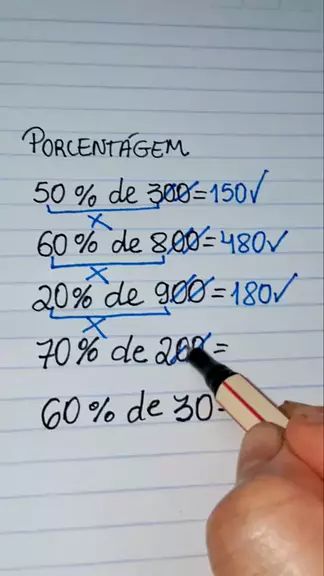 PORCENTÁGEM
50 % de 300 = 150 ✓
x
60 % de 800 = 480 ✓
x
20% de 900 = 180 ✓
x
70% de 200 =
60% de 30